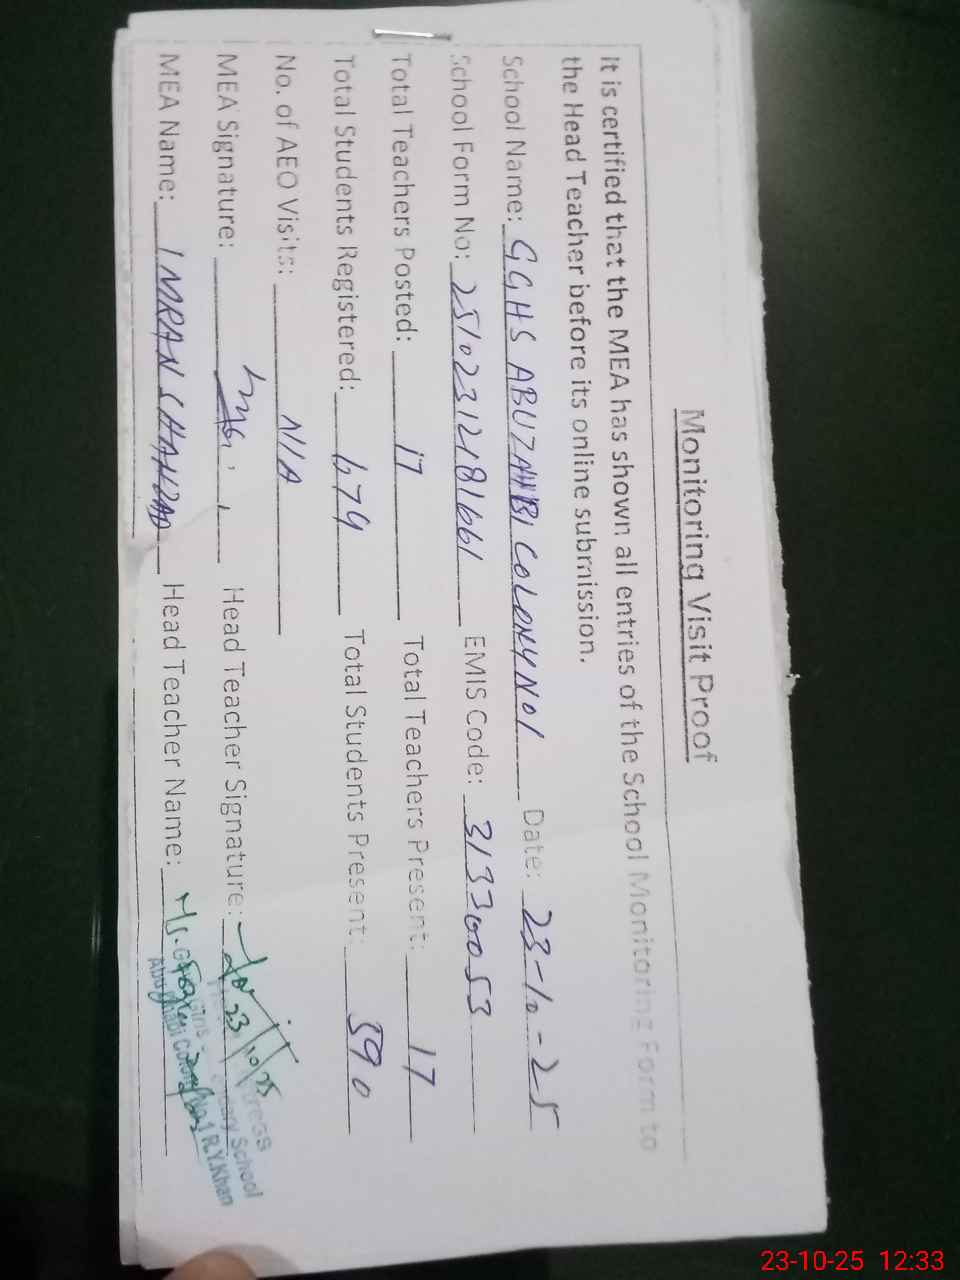 Monitoring Visit Proof
it is certified that the MEA has shown all entries of the School Monitoring Form to
the Head Teacher before its online submission.
School Name: GGHS ABUZAHBI COLONY NO1 Date: 23-10-25
School Form No: 25102312181661 EMIS Code: 31330053
Total Teachers Posted: 17 Total Teachers Present: 17
Total Students Registered: 679 Total Students Present: 590
No. of AEO Visits: N/A
MEA Signature: Head Teacher Signature: 23/10/25
MEA Name: IMRAN SHAHZAD Head Teacher Name: Ms.
School
Abu Dhabi Colony No.1 R.Y.Khan
23-10-25 12:33